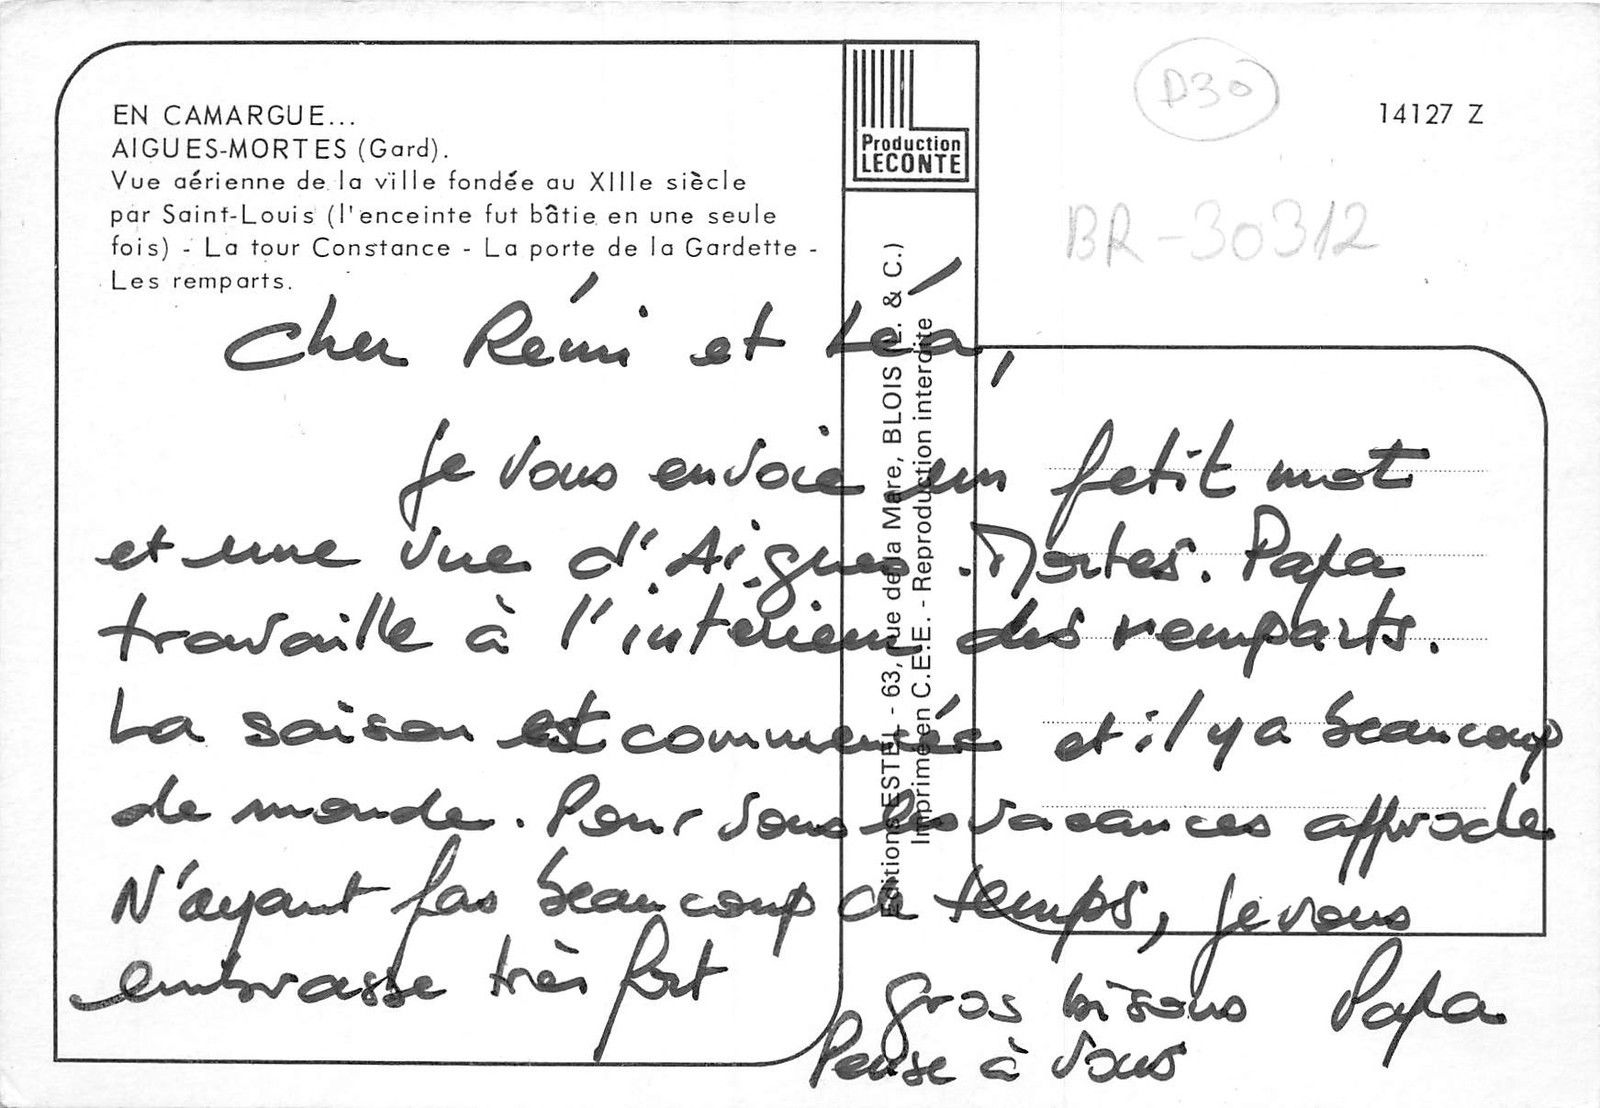 EN CAMARGUE...
AIGUES-MORTES (Gard).
Vue aérienne de la ville fondée au XIIIe siècle
par Saint-Louis (l'enceinte fut bâtie en une seule
fois) - La tour Constance - La porte de la Gardette -
Les remparts.
Production
LECONTE
D30
14127 Z
BR-30312
Editions ESTEL - 63, rue de la Mare, BLOIS (L. & C.)
Imprimé en C.E.E. - Reproduction interdite
Cher Rémi et Léa,
je vous envoie un petit mot
et une vue d'Aigues.Mortes. Papa
travaille à l'intérieur des remparts.
La saison est commencée et il y a beaucoup
de monde. Pour vous les vacances approche
N'ayant pas beaucoup de temps, je vous
embrasse très fort
gros bisous Papa
Pense à vous